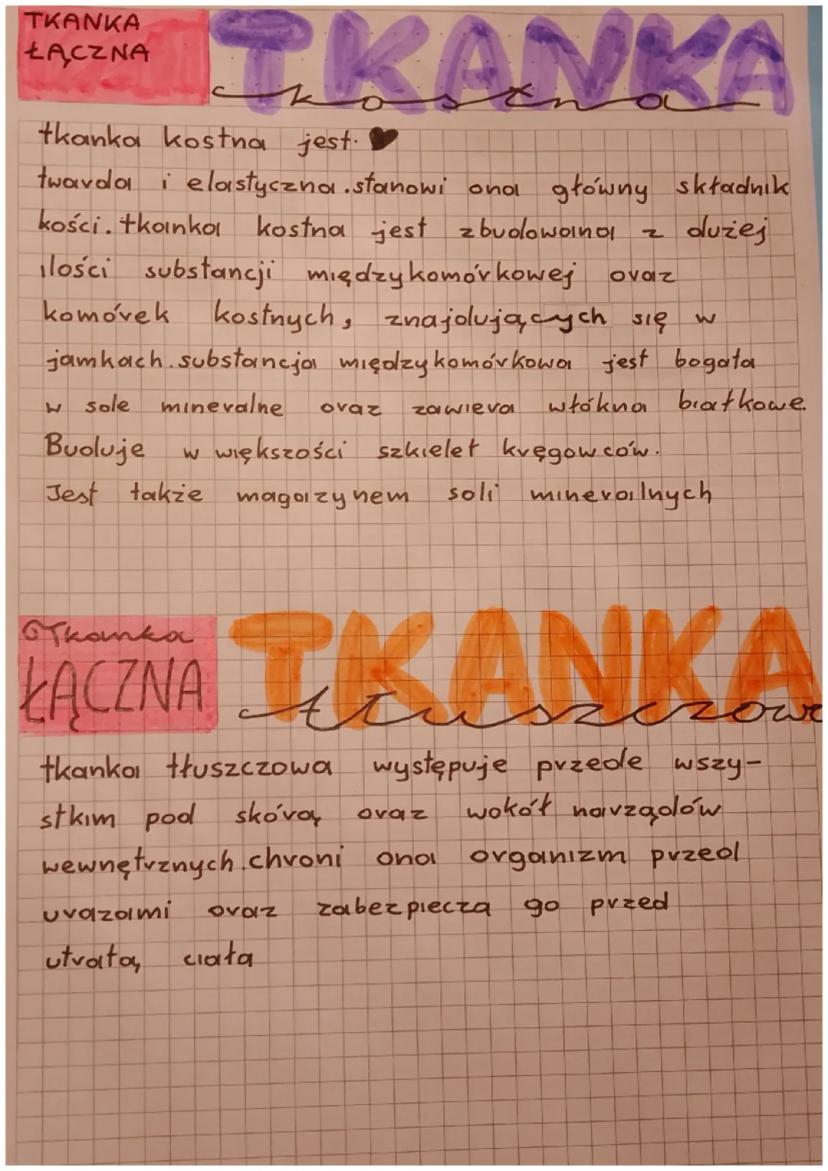 TKANKA
ŁĄCZNA
TKANKA
kostna
tkanka kostna jest.
twarda i elastyczna.stanowi ona główny składnik
kości.tkanka kostna jest zbudowana z dużej
ilości substancji międzykomórkowej oraz
komórek kostnych, znajdujących się w
jamkach.substancja międzykomórkowa jest bogata
w sole mineralne oraz zawiera włókna białkowe.
Buduje w większości szkielet kręgowców.
Jest także magazynem soli mineralnych
Tkanka
ŁĄCZNA
TKANKA
tłuszczowa
tkanka tłuszczowa występuje przede wszy-
stkim pod skórą oraz wokół narządów
wewnętrznych.chroni ona organizm przed
urazami oraz zabezpiecza go przed
utratą ciała